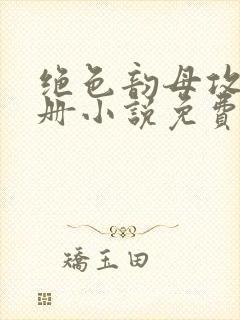 绝色韵母攻
册小说免费
矯玉田